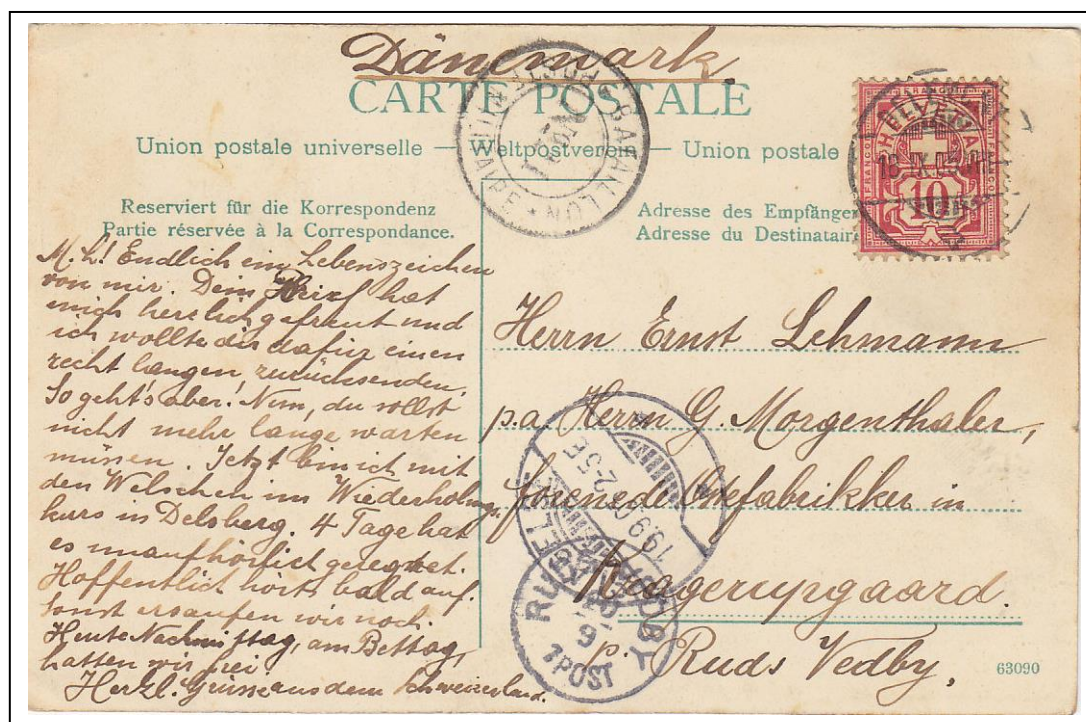 Dänemark.
CARTE POSTALE
Union postale universelle — Weltpostverein — Union postale
Reserviert für die Korrespondenz
Partie réservée à la Correspondance.
Adresse des Empfänger
Adresse du Destinatair
HELVETIA
FRANCO
10
BATAILLON
M. L! Endlich ein Lebenszeichen
von mir. Dein Brief hat
mich herzlich gefreut und
ich wollte dir dafür einen
recht langen, zurücksenden.
So geht's aber! Nun, du sollst
nicht mehr lange warten
müssen. Jetzt bin ich mit
den Welschen im Wiederholungs
kurs in Delsberg. 4 Tage hat
es unaufhörlich geregnet.
Hoffentlich hörts bald auf.
sonst ersaufen wir noch
Heute Nachmittag, am Bettag,
hatten wir frei
Herzl. Grüsse aus dem Schweizerland.
Herrn Ernst Lehmann
p.a. Herrn G. Morgenthaler,
forenede Ostefabrikker in
Kragerupgaard.
p. Ruds Vedby.
RUDS VEDBY
POST
63090